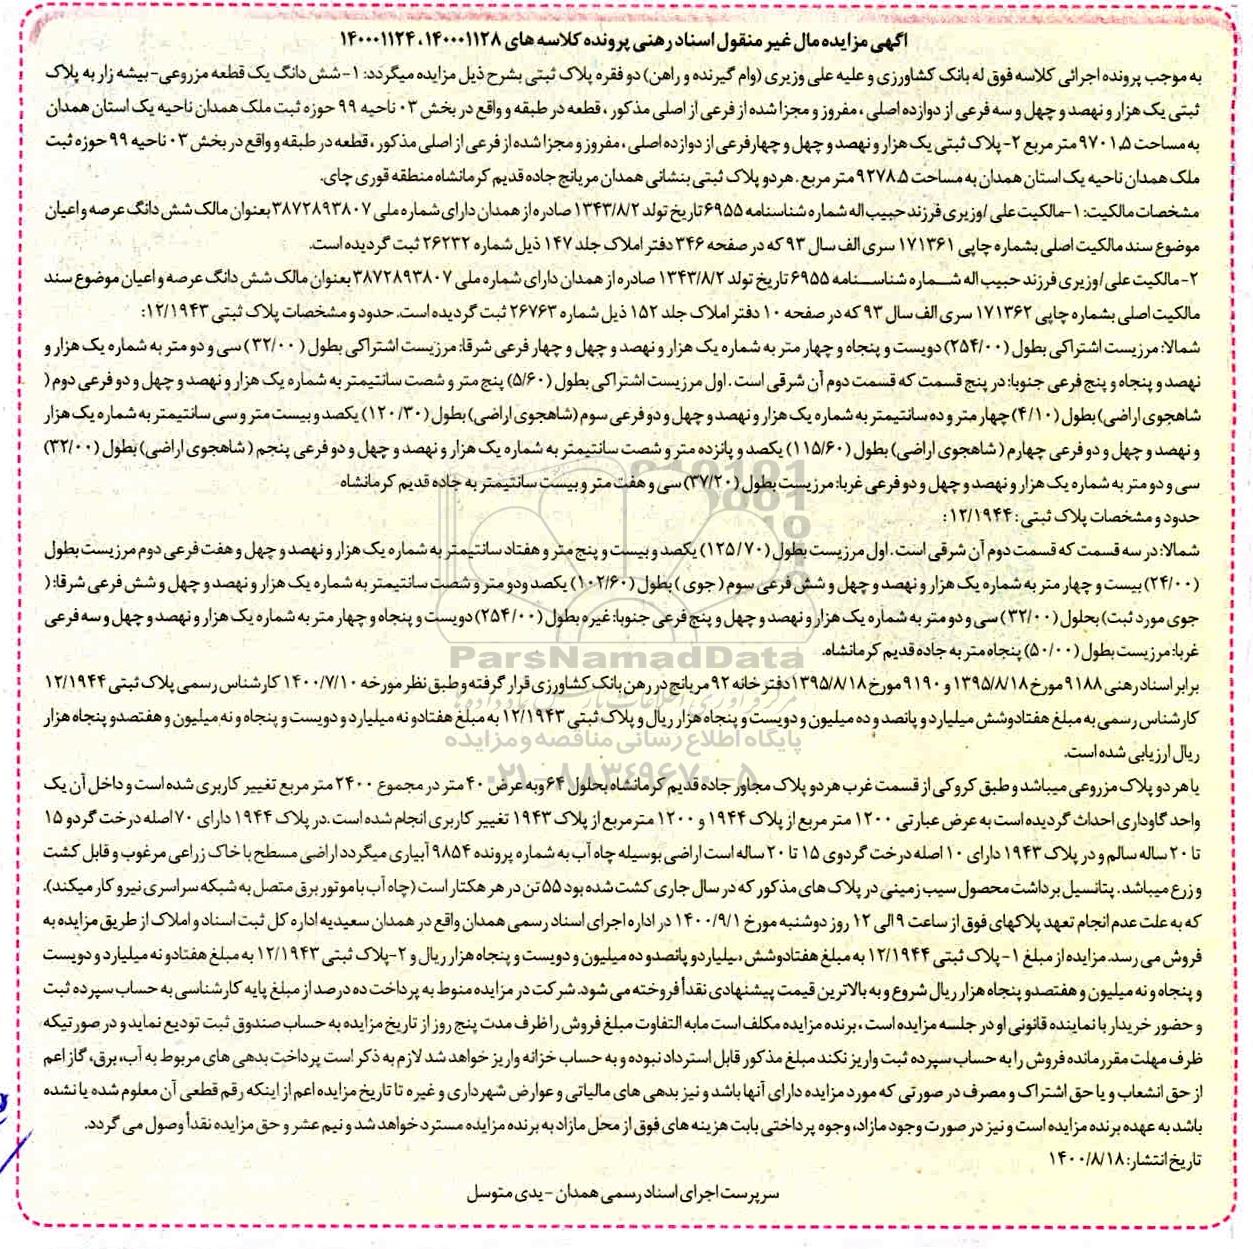 آگهی مزایده مال غیر منقول اسناد رهنی پرونده کلاسه های ۱۴۰۰۰۱۱۲۸ ، ۱۴۰۰۰۱۱۲۴
به موجب پرونده اجرائی کلاسه فوق له بانک کشاورزی و علیه علی وزیری (وام گیرنده و راهن) دو فقره پلاک ثبتی بشرح ذیل مزایده میگردد: ۱-شش دانگ یک قطعه مزروعی-بیشه زار به پلاک
ثبتی یک هزار و نهصد و چهل و سه فرعی از دوازده اصلی ، مفروز و مجزا شده از فرعی از اصلی مذکور ، قطعه در طبقه و واقع در بخش ۰۳ ناحیه ۹۹ حوزه ثبت ملک همدان ناحیه یک استان همدان
به مساحت ۹۷۰۱.۵ متر مربع ۲- پلاک ثبتی یک هزار و نهصد و چهل و چهار فرعی از دوازده اصلی ، مفروز و مجزا شده از فرعی از اصلی مذکور ، قطعه در طبقه و واقع در بخش ۰۳ ناحیه ۹۹ حوزه ثبت
ملک همدان ناحیه یک استان همدان به مساحت ۹۲۷۸.۵ متر مربع . هر دو پلاک ثبتی بنشانی همدان مریانج جاده قدیم کرمانشاه منطقه قوری چای.
مشخصات مالکیت: ۱-مالکیت علی /وزیری فرزند حبیب اله شماره شناسنامه ۶۹۵۵ تاریخ تولد ۱۳۴۳/۸/۲ صادره از همدان دارای شماره ملی ۳۸۷۲۸۹۳۸۰۷ بعنوان مالک شش دانگ عرصه و اعیان
موضوع سند مالکیت اصلی بشماره چاپی ۱۷۱۳۶۱ سری الف سال ۹۳ که در صفحه ۳۴۶ دفتر املاک جلد ۱۴۷ ذیل شماره ۲۶۲۳۲ ثبت گردیده است.
۲- مالکیت علی/وزیری فرزند حبیب اله شماره شناسنامه ۶۹۵۵ تاریخ تولد ۱۳۴۳/۸/۲ صادره از همدان دارای شماره ملی ۳۸۷۲۸۹۳۸۰۷ بعنوان مالک شش دانگ عرصه و اعیان موضوع سند
مالکیت اصلی بشماره چاپی ۱۷۱۳۶۲ سری الف سال ۹۳ که در صفحه ۱۰ دفتر املاک جلد ۱۵۲ ذیل شماره ۲۶۷۶۳ ثبت گردیده است. حدود و مشخصات پلاک ثبتی ۱۲/۱۹۴۳:
شمالا: مرزیست اشتراکی بطول (۲۵۴/۰۰) دویست و پنجاه و چهار متر به شماره یک هزار و نهصد و چهل و چهار فرعی شرقا: مرزیست اشتراکی بطول (۳۲/۰۰) سی و دو متر به شماره یک هزار و
نهصد و پنجاه و پنج فرعی جنوبا: در پنج قسمت که قسمت دوم آن شرقی است . اول مرزیست اشتراکی بطول (۵/۶۰) پنج متر و شصت سانتیمتر به شماره یک هزار و نهصد و چهل و دو فرعی دوم (
شاهجوی اراضی) بطول (۴/۱۰) چهار متر و ده سانتیمتر به شماره یک هزار و نهصد و چهل و دو فرعی سوم (شاهجوی اراضی) بطول (۱۲۰/۳۰) یکصد و بیست متر و سی سانتیمتر به شماره یک هزار
و نهصد و چهل و دو فرعی چهارم ( شاهجوی اراضی) بطول (۱۱۵/۶۰) یکصد و پانزده متر و شصت سانتیمتر به شماره یک هزار و نهصد و چهل و دو فرعی پنجم ( شاهجوی اراضی) بطول (۳۲/۰۰)
سی و دو متر به شماره یک هزار و نهصد و چهل و دو فرعی غربا: مرزیست بطول (۳۷/۲۰) سی و هفت متر و بیست سانتیمتر به جاده قدیم کرمانشاه
حدود و مشخصات پلاک ثبتی : ۱۲/۱۹۴۴:
شمالا: در سه قسمت که قسمت دوم آن شرقی است . اول مرزیست بطول (۱۲۵/۷۰) یکصد و بیست و پنج متر و هفتاد سانتیمتر به شماره یک هزار و نهصد و چهل و هفت فرعی دوم مرزیست بطول
(۲۴/۰۰) بیست و چهار متر به شماره یک هزار و نهصد و چهل و شش فرعی سوم ( جوی ) بطول (۱۰۲/۶۰) یکصد ودو متر و شصت سانتیمتر به شماره یک هزار و نهصد و چهل و شش فرعی شرقا: (
جوی مورد ثبت) بحلول (۳۲/۰۰) سی و دو متر به شماره یک هزار و نهصد و چهل و پنج فرعی جنوبا: غیره بطول (۲۵۴/۰۰) دویست و پنجاه و چهار متر به شماره یک هزار و نهصد و چهل و سه فرعی
غربا: مرزیست بطول (۵۰/۰۰) پنجاه متر به جاده قدیم کرمانشاه.
برابر اسناد رهنی ۹۱۸۸ مورخ ۱۳۹۵/۸/۱۸ و ۹۱۹۰ مورخ ۱۳۹۵/۸/۱۸ دفتر خانه ۹۲ مریانج در رهن بانک کشاورزی قرار گرفته و طبق نظر مورخه ۱۴۰۰/۷/۱۰ کارشناس رسمی پلاک ثبتی ۱۲/۱۹۴۴
کارشناس رسمی به مبلغ هفتادوشش میلیارد و پانصد و ده میلیون و دویست و پنجاه هزار ریال و پلاک ثبتی ۱۲/۱۹۴۳ به مبلغ هفتادو نه میلیارد و دویست و پنجاه و نه میلیون و هفتصدو پنجاه هزار
ریال ارزیابی شده است.
یا هر دو پلاک مزروعی میباشد و طبق کروکی از قسمت غرب هر دو پلاک مجاور جاده قدیم کرمانشاه بحلول ۶۴ وبه عرض ۴۰ متر در مجموع ۲۴۰۰ متر مربع تغییر کاربری شده است و داخل آن یک
واحد گاوداری احداث گردیده است به عرض عبارتی ۱۲۰۰ متر مربع از پلاک ۱۹۴۴ و ۱۲۰۰ متر مربع از پلاک ۱۹۴۳ تغییر کاربری انجام شده است .در پلاک ۱۹۴۴ دارای ۷۰ اصله درخت گردو ۱۵
تا ۲۰ ساله سالم و در پلاک ۱۹۴۳ دارای ۱۰ اصله درخت گردوی ۱۵ تا ۲۰ ساله است اراضی بوسیله چاه آب به شماره پرونده ۹۸۵۴ آبیاری میگردد اراضی مسطح با خاک زراعی مرغوب و قابل کشت
و زرع میباشد . پتانسیل برداشت محصول سیب زمینی در پلاک های مذکور که در سال جاری کشت شده بود ۵۵ تن در هر هکتار است (چاه آب با موتور برق متصل به شبکه سراسری نیرو کار میکند).
که به علت عدم انجام تعهد پلاکهای فوق از ساعت ۹ الی ۱۲ روز دوشنبه مورخ ۱۴۰۰/۹/۱ در اداره اجرای اسناد رسمی همدان واقع در همدان سعیدیه اداره کل ثبت اسناد و املاک از طریق مزایده به
فروش می رسد. مزایده از مبلغ ۱- پلاک ثبتی ۱۲/۱۹۴۴ به مبلغ هفتادوشش میلیاردو پانصدو ده میلیون و دویست و پنجاه هزار ریال و ۲-پلاک ثبتی ۱۲/۱۹۴۳ به مبلغ هفتادو نه میلیارد و دویست
و پنجاه و نه میلیون و هفتصدو پنجاه هزار ریال شروع و به بالاترین قیمت پیشنهادی نقداً فروخته می شود. شرکت در مزایده منوط به پرداخت ده درصد از مبلغ پایه کارشناسی به حساب سپرده ثبت
و حضور خریدار با نماینده قانونی او در جلسه مزایده است ، برنده مزایده مکلف است مابه التفاوت مبلغ فروش را ظرف مدت پنج روز از تاریخ مزایده به حساب صندوق ثبت تودیع نماید و در صورتیکه
ظرف مهلت مقرر مانده فروش را به حساب سپرده ثبت واریز نکند مبلغ مذکور قابل استرداد نبوده و به حساب خزانه واریز خواهد شد لازم به ذکر است پرداخت بدهی های مربوط به آب، برق، گاز اعم
از حق انشعاب و یا حق اشتراک و مصرف در صورتی که مورد مزایده دارای آنها باشد و نیز بدهی های مالیاتی و عوارض شهرداری و غیره تا تاریخ مزایده اعم از اینکه رقم قطعی آن معلوم شده یا نشده
باشد به عهده برنده مزایده است و نیز در صورت وجود مازاد، وجوه پرداختی بابت هزینه های فوق از محل مازاد به برنده مزایده مسترد خواهد شد و نیم عشر و حق مزایده نقداً وصول می گردد.
تاریخ انتشار: ۱۴۰۰/۸/۱۸
سرپرست اجرای اسناد رسمی همدان - یدی متوسل
ParsNamadData
پایگاه اطلاع رسانی مناقصه و مزایده
۰۲۱-۸۸۳۴۹۶۷۰-۵